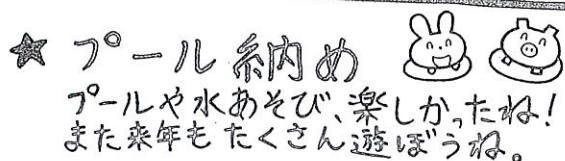 ★ プール納め
プールや水あそび、楽しかったね!
また来年もたくさん遊ぼうね。